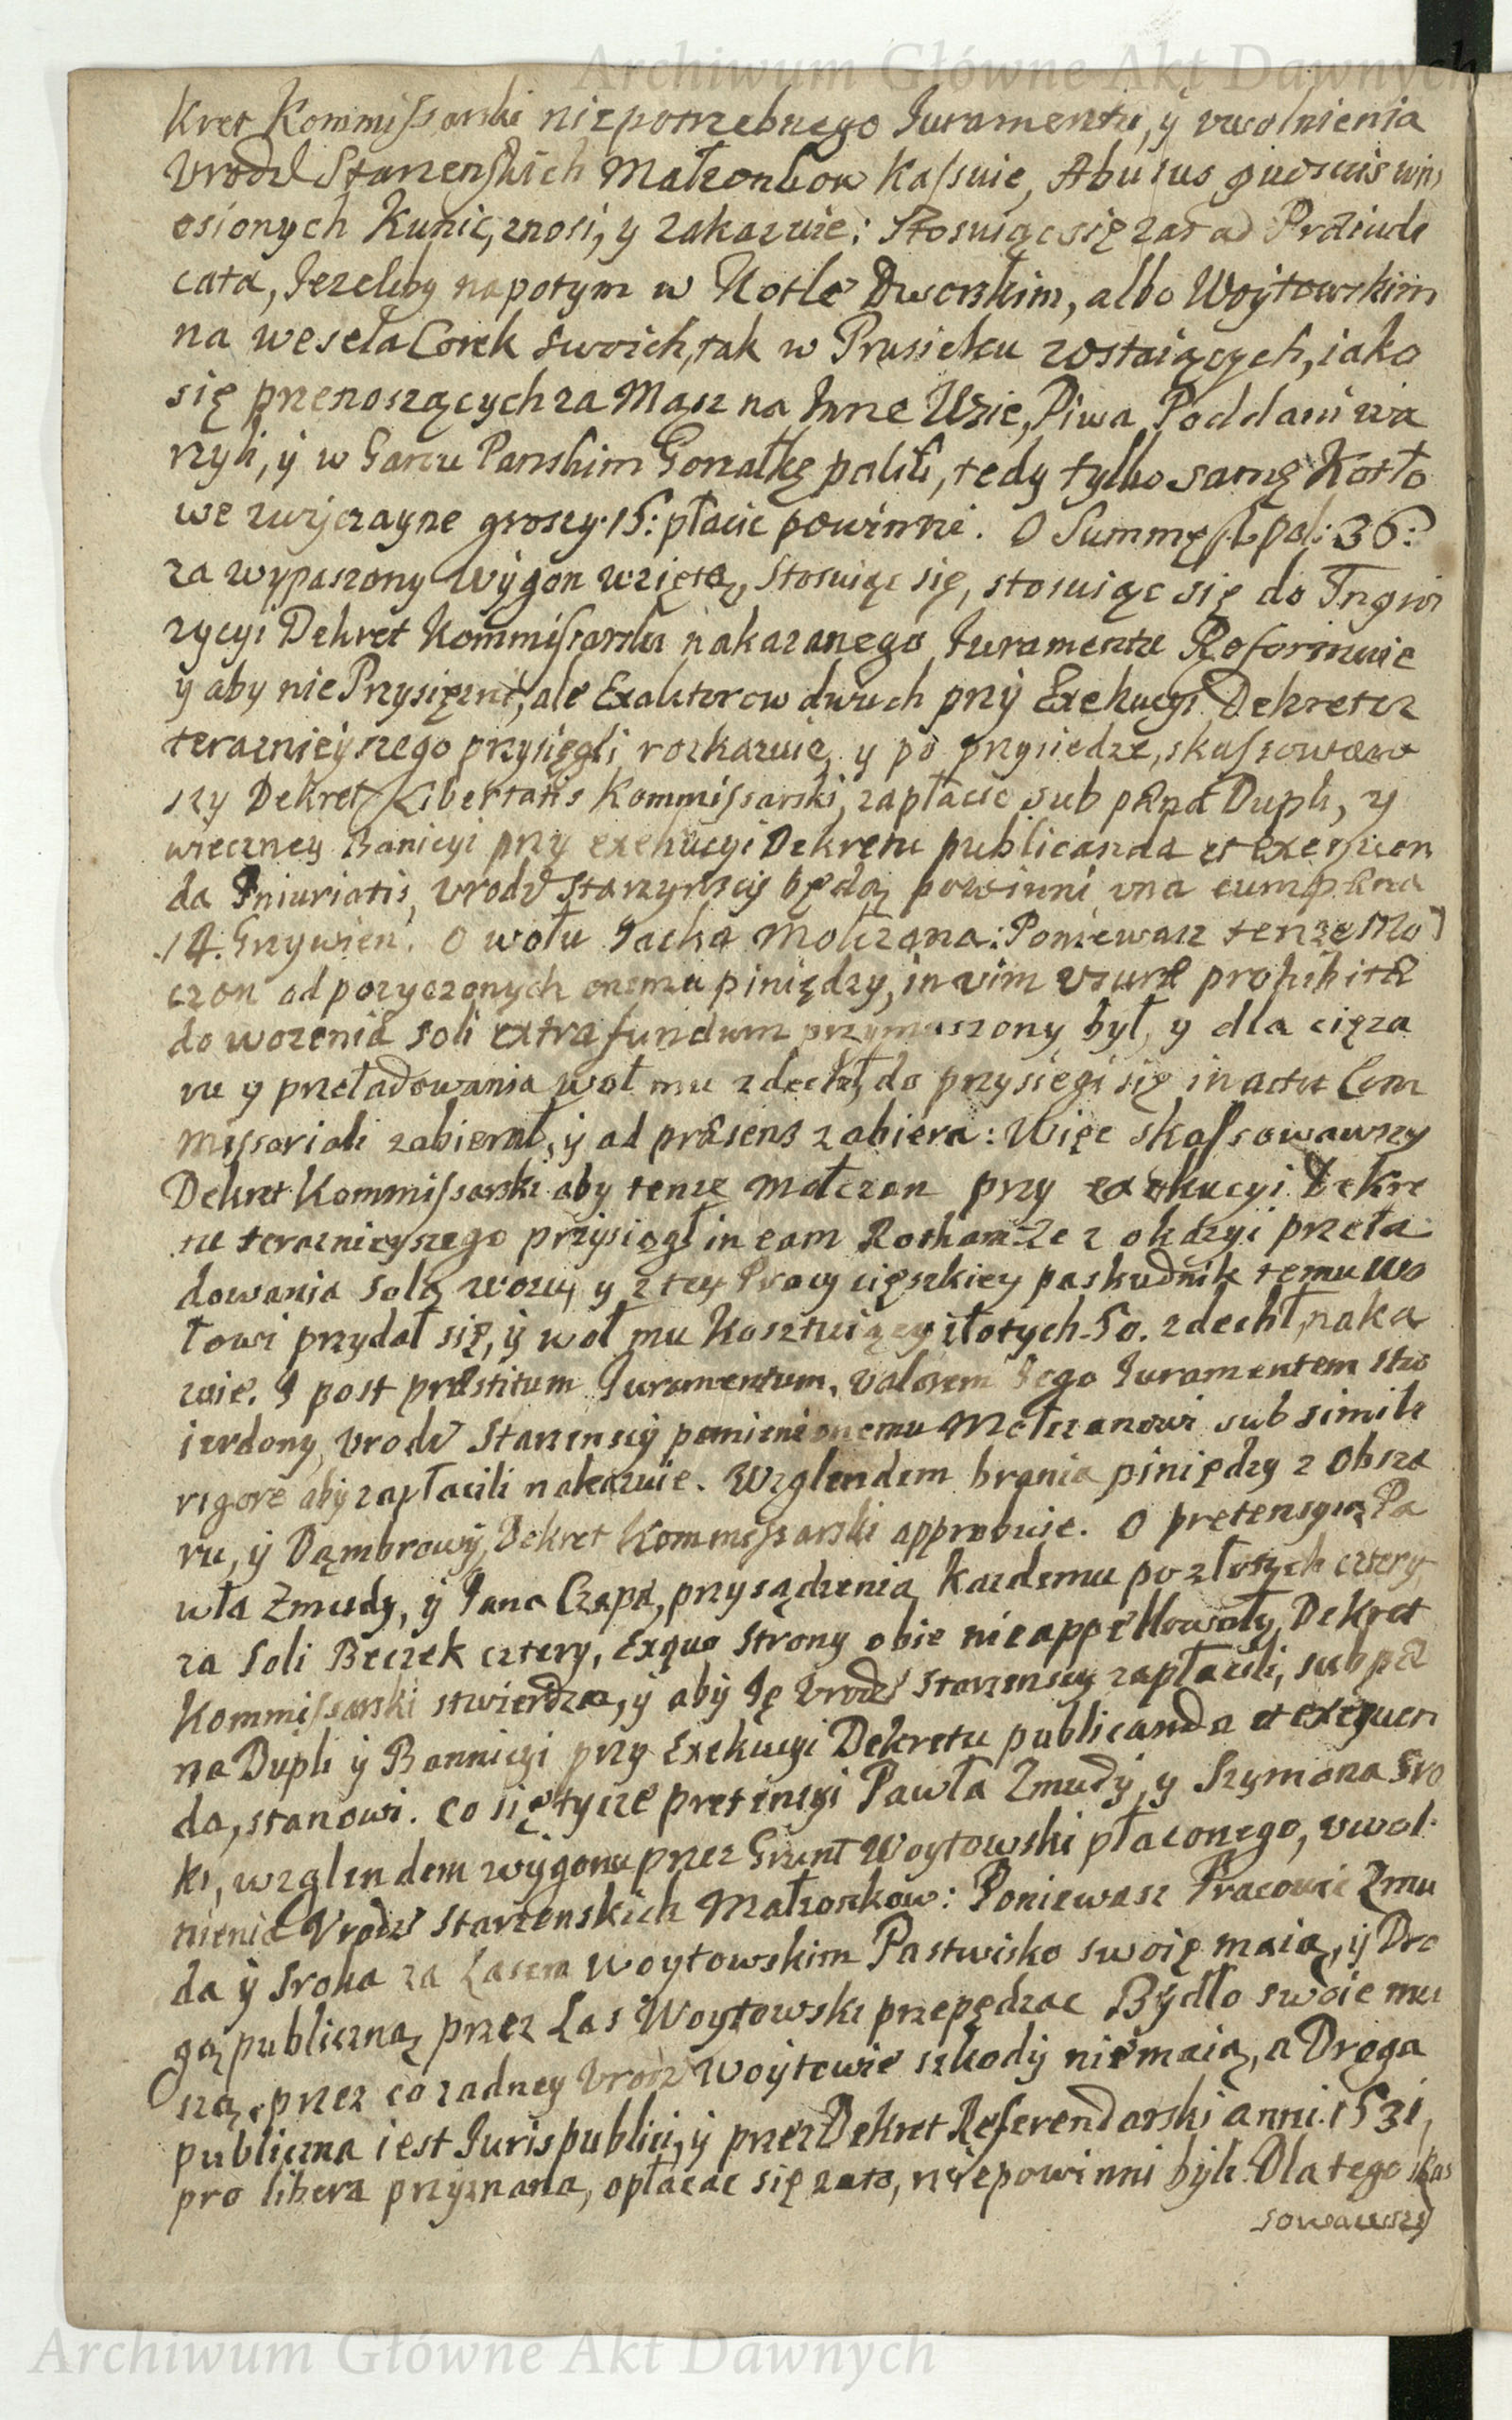 Archiwum Główne Akt Dawnych
kret Kommissarski niepotrzebnego Juramentu, y uwolnienia
Urodz Starzenskich Małzonkow Kassuie, Abusus
esionych Kunic, znosi, y zakazuie: Stosuiąc się zas ad Præiudi
cata, Jezeliby napotym w Kotle Dworskim, albo Woytowskim
na wesela Corek swoich, tak w Prusieku zostaiących, iako
się przenoszących za Mąsz na Inne Wsie, Piwa Poddani wa
rzyli, y w Garcu Panskim Gorzałkę palili, tedy tylko samę Kotło
we zwyczayne groszy 15: płacic powinni. O Summę pol: 36:
za wypaszony wygon wziętą, stosuiąc się, stosuiąc się do Inqwi
zycyi Dekret Kommissarski nakazanego Juramentu Reformuie
y aby nie Przysięzni, ale Exaktorow dwuch przy Exekucyi Dekretu
teraznieyszego przysięgli rozkazuie, y po przysiedze, skassowaw
szy Dekret Libertatis Kommissarski, zapłacic sub pæna Dupli, y
wieczney Banicyi przy exekucyi Dekretu publicanda et exequen
da Iniuriatis, Urodz Starzynscy będą powinni una cum pæna
14. Grzywien. O wołu Jacka Mołczana: Poniewasz tenze Mo
czon od pozyczonych onemu piniędzy, in vim usuræ prohibitæ
do wozenia soli extra fundum przymuszony był, y dla cięza
ru y przeładowania woł mu zdechł, do przysiegi się in actu Com
missoriali zabierał, y ad præsens zabiera: Więc skassowawszy
Dekret Kommissarski aby tenze Mołczan przy exekucyi Dekre
tu teraznieyszego przysiągł in eam Rotham Ze z okazyi przeła
dowania solą wozu, y z tey Pracy cięszkiey paskudnik temu wo
łowi przydał się, y woł mu kosztuiący złotych 50. zdechł, naka
zuie. I post præstitum Juramentum, valorem Jego Juramentem stw
ierdony, Urodz Starzenscy pomienionemu Mołczanowi sub simili
rigore aby zapłacili nakazuie. Wzglendem brania piniędzy z Obsza
ru, y Dąmbrowy, Dekret Kommissarski approbuie. O pretensyią Pa
wła Zmudy, y Jana Czapa, przysądzenia kazdemu po złotych cztery
za Soli Beczek cztery, Exquo Strony obie nieappellowały, Dekret
Kommissarski stwierdza, y aby Ię Urodz Starzenscy zapłacili, sub pæ
na Dupli y Bannicyi przy Exekucyi Dekretu publicanda et exequen
da, stanowi. Co się tycze pretensyi Pawła Zmudy, y Szymona Sro
ki, wzglendem wygonu przez Grunt Woytowski płaconego, uwol
nienia Urodz Starzenskich Małzonkow: Poniewasz Pracowic Zmu
da y Sroka za Lasem Woytowskim Pastwisko swoię maią, y Dro
gą publiczną przez Las Woytowski przepędzac Bydło swoie mu
szą, przez co zadney Urodz Woytowie szkody niemaią, a Droga
publiczna iest Juris publici, y przez Dekret Referendarski anni 1531,
pro libera przyznana, opłacac się zato, niepowinni byli. Dla tego skas
sowawszy
Archiwum Główne Akt Dawnych